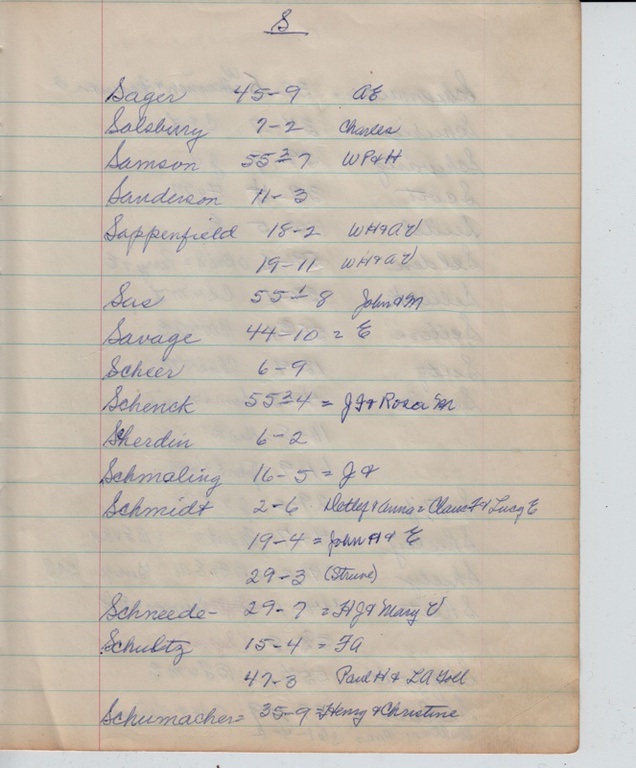 S
Sager 45-9 AE
Salsburry 7-2 Charles
Samson 55²-7 WP&H
Sanderson 11-3
Sappenfield 18-2 WH&AV
19-11 WH&AV
Sas 55¹-8 John&M
Savage 44-10 = E
Scheer 6-9
Schenck 55²-4 = JJ& Rosa M
Sherdin 6-2
Schmaling 16-5 = J&
Schmidt 2-6 Detlef & Anna = Claus F & Lucy E
19-4 = John H & E
29-3 (Struve)
Schneede- 29-7 = HJ& Mary V
Schultz 15-4 = FA
47-3 Paul H & LA
Schumacher= 35-9 = Henry & Christine